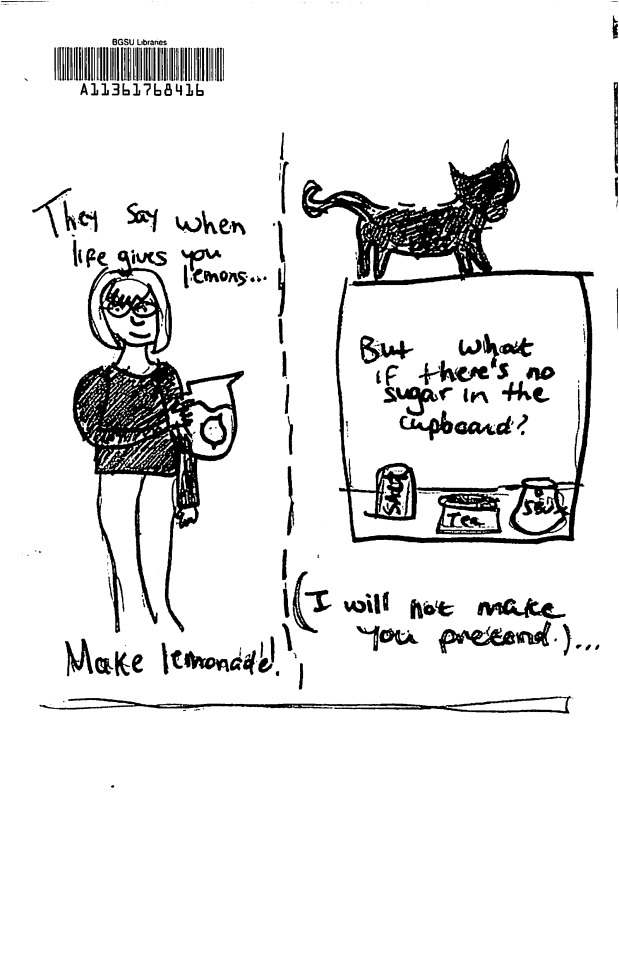 BGSU Libraries
A11361768416
They say when
life gives you
lemons...
Make lemonade!
But what
if there's no
sugar in the
cupboard?
Salt
Tea
(I will not make
you pretend.)...